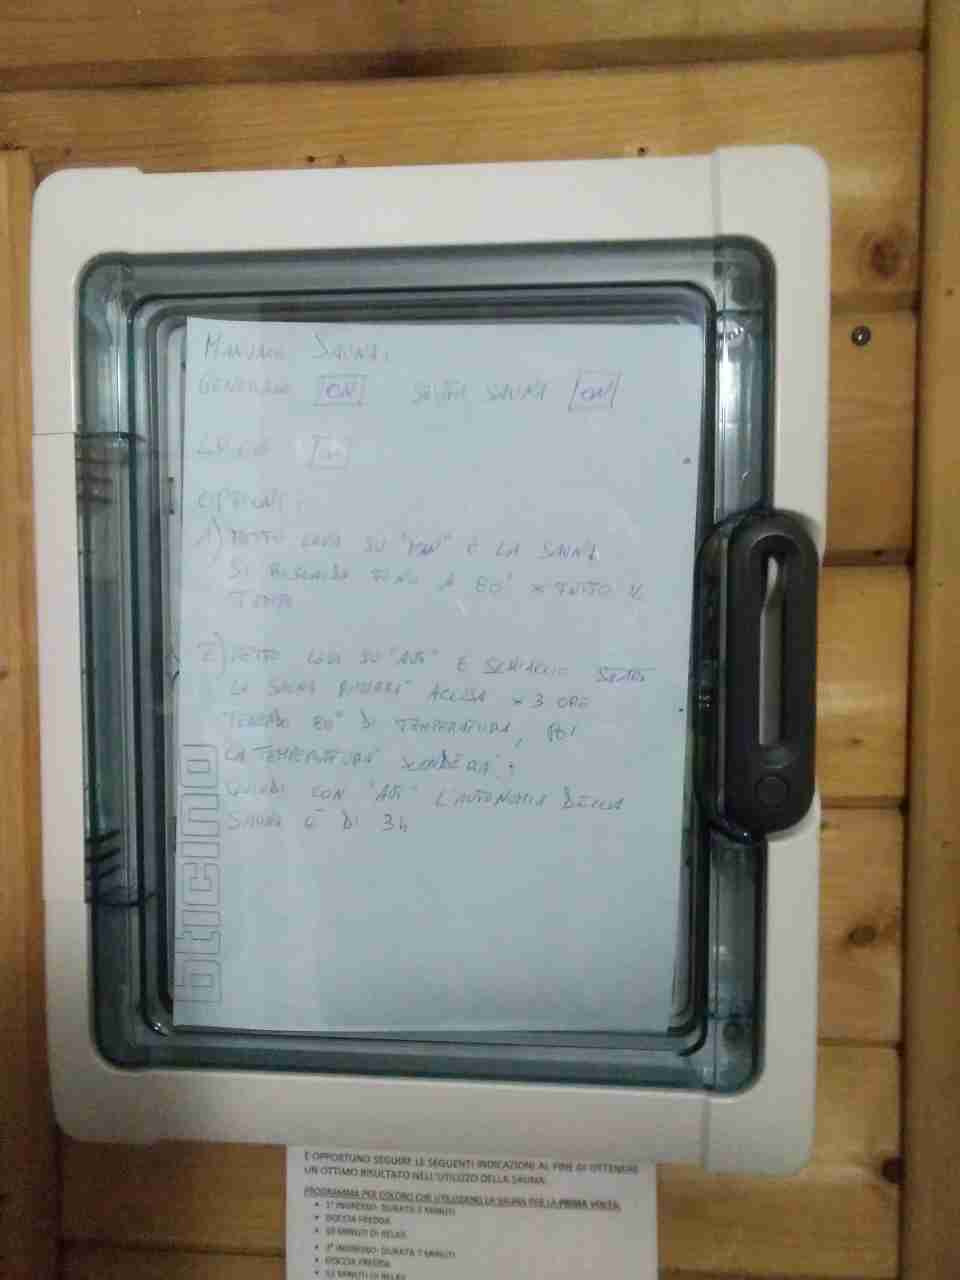 MANUALE SAUNA:
GENERALE ON SAUNA ON
LUCE
OPZIONI:
1) METTO LEVA SU "MAN" E LA SAUNA
SI RISCALDA FINO A 80° x TUTTO IL
TEMPO
2) METTO LEVA SU "AUT" E SCHIACCIO
LA SAUNA RIMARRA' ACCESA x 3 ORE
TENENDO 80° DI TEMPERATURA, POI
LA TEMPERATURA SCENDERA';
QUINDI CON "AUT" L'AUTONOMIA DELLA
SAUNA È DI 3h
bticino
È OPPORTUNO SEGUIRE LE SEGUENTI INDICAZIONI AL FINE DI OTTENERE
UN OTTIMO RISULTATO NELL'UTILIZZO DELLA SAUNA.
PROGRAMMA PER COLORO CHE UTILIZZANO LA SAUNA PER LA PRIMA VOLTA:
• 1° INGRESSO: DURATA MINUTI
• DOCCIA FREDDA
• 10 MINUTI DI RELAX
• 2° INGRESSO: DURATA 7 MINUTI
• DOCCIA FREDDA
• MINUTI DI RELAX